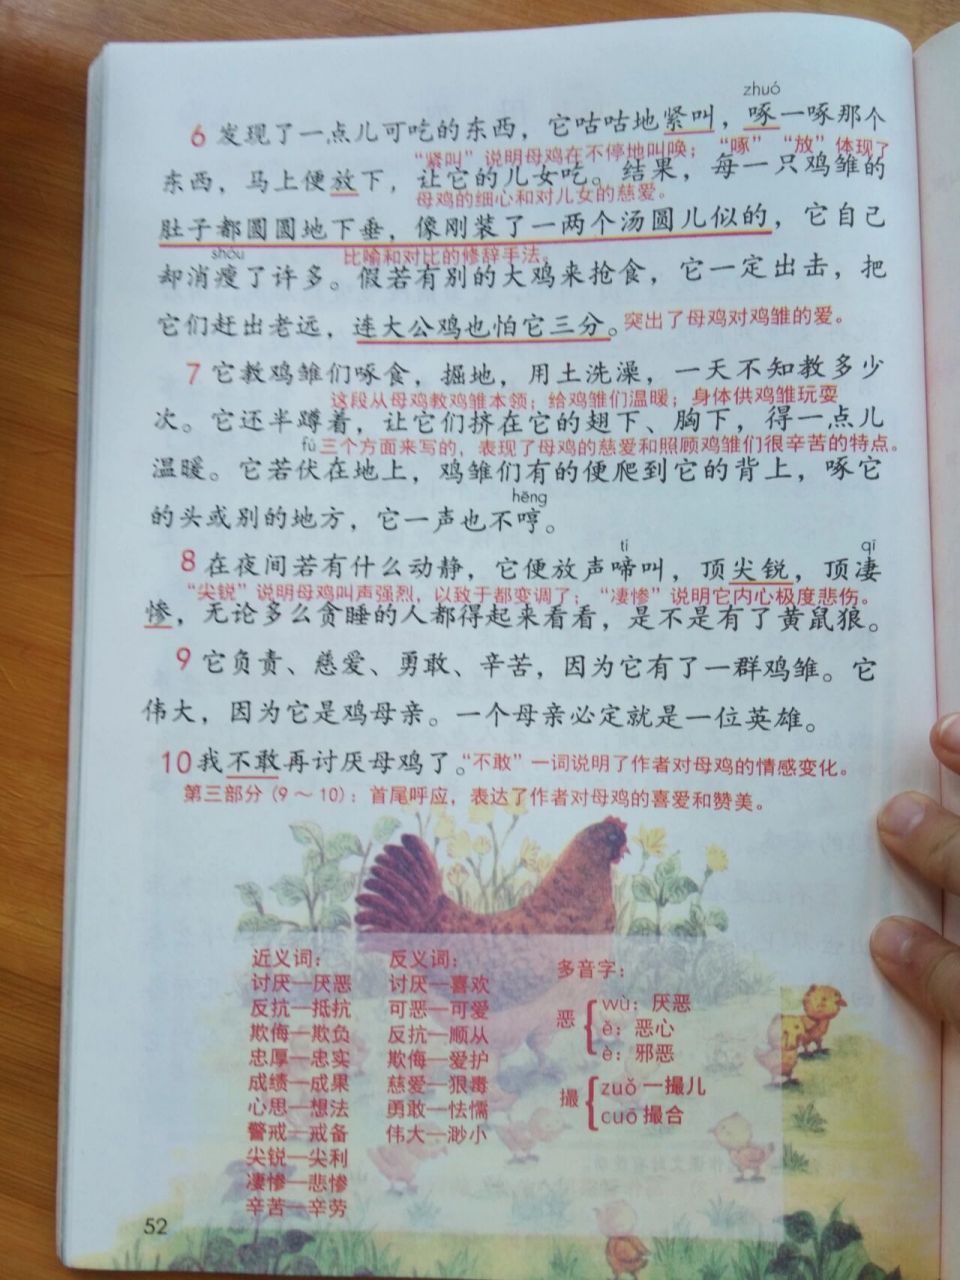 zhuó
6 发现了一点儿可吃的东西，它咕咕地紧叫，啄一啄那个
“紧叫”说明母鸡在不停地叫唤；“啄”“放”体现了
东西，马上便放下，让它的儿女吃。结果，每一只鸡雏的
母鸡的细心和对儿女的慈爱。
肚子都圆圆地下垂，像刚装了一两个汤圆儿似的，它自己
shòu
比喻和对比的修辞手法。
却消瘦了许多。假若有别的大鸡来抢食，它一定出击，把
它们赶出老远，连大公鸡也怕它三分。突出了母鸡对鸡雏的爱。
7 它教鸡雏们啄食，掘地，用土洗澡，一天不知教多少
这段从母鸡教鸡雏本领；给鸡雏们温暖；身体供鸡雏玩耍
次。它还半蹲着，让它们挤在它的翅下、胸下，得一点儿
fú
三个方面来写的，表现了母鸡的慈爱和照顾鸡雏们很辛苦的特点。
温暖。它若伏在地上，鸡雏们有的便爬到它的背上，啄它
hēng
的头或别的地方，它一声也不哼。
tí qī
8 在夜间若有什么动静，它便放声啼叫，顶尖锐，顶凄
“尖锐”说明母鸡叫声强烈，以致于都变调了；“凄惨”说明它内心极度悲伤。
惨，无论多么贪睡的人都得起来看看，是不是有了黄鼠狼。
9 它负责、慈爱、勇敢、辛苦，因为它有了一群鸡雏。它
伟大，因为它是鸡母亲。一个母亲必定就是一位英雄。
10 我不敢再讨厌母鸡了。“不敢”一词说明了作者对母鸡的情感变化。
第三部分（9～10）：首尾呼应，表达了作者对母鸡的喜爱和赞美。
近义词：
讨厌—厌恶
反抗—抵抗
欺侮—欺负
忠厚—忠实
成绩—成果
心思—想法
警戒—戒备
尖锐—尖利
凄惨—悲惨
辛苦—辛劳
反义词：
讨厌—喜欢
可恶—可爱
反抗—顺从
欺侮—爱护
慈爱—狠毒
勇敢—怯懦
伟大—渺小
多音字：
恶
wù：厌恶
ě：恶心
è：邪恶
撮
zuǒ 一撮儿
cuō 撮合
52